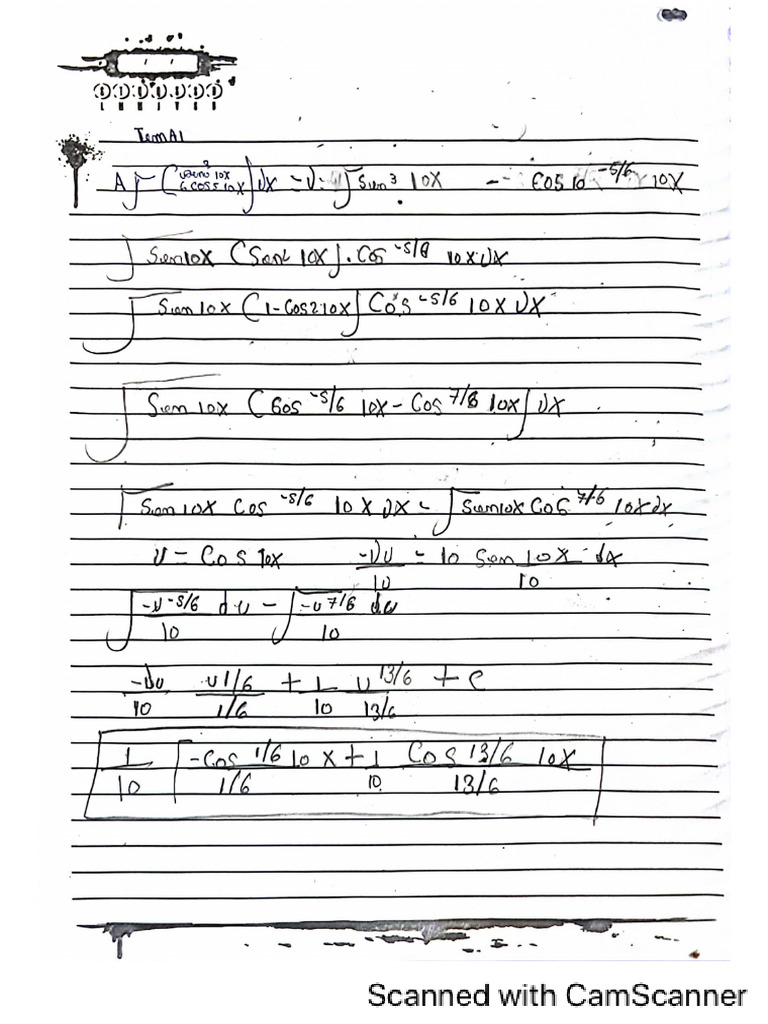 TemA1
A ∫ ( 3 10x / 6 cos 5 10x ) dx = ∫ Sen³ 10x cos 10 ^-5/6 10x
∫ Sen 10x (Sen² 10x). Cos ^-5/8 10x dx
∫ Sen 10x (1-Cos2 10x) Cos ^-5/6 10x dx
∫ Sen 10x (Cos ^-5/6 10x - Cos ^7/8 10x) dx
∫ Sen 10x Cos ^-5/6 10x dx - ∫ Sen10x Cos ^7/6 10x dx
U = Cos 10x -du/10 = 10 Sen 10x dx/10
∫ -u^-5/6/10 du - ∫ -u^7/6/10 du
-du/10 u1/6/1/6 + 1/10 u^13/6/13/6 + C
1/10 [-Cos ^1/6 10x/1/6 + 1/10 Cos ^13/6 10x/13/6
Scanned with CamScanner